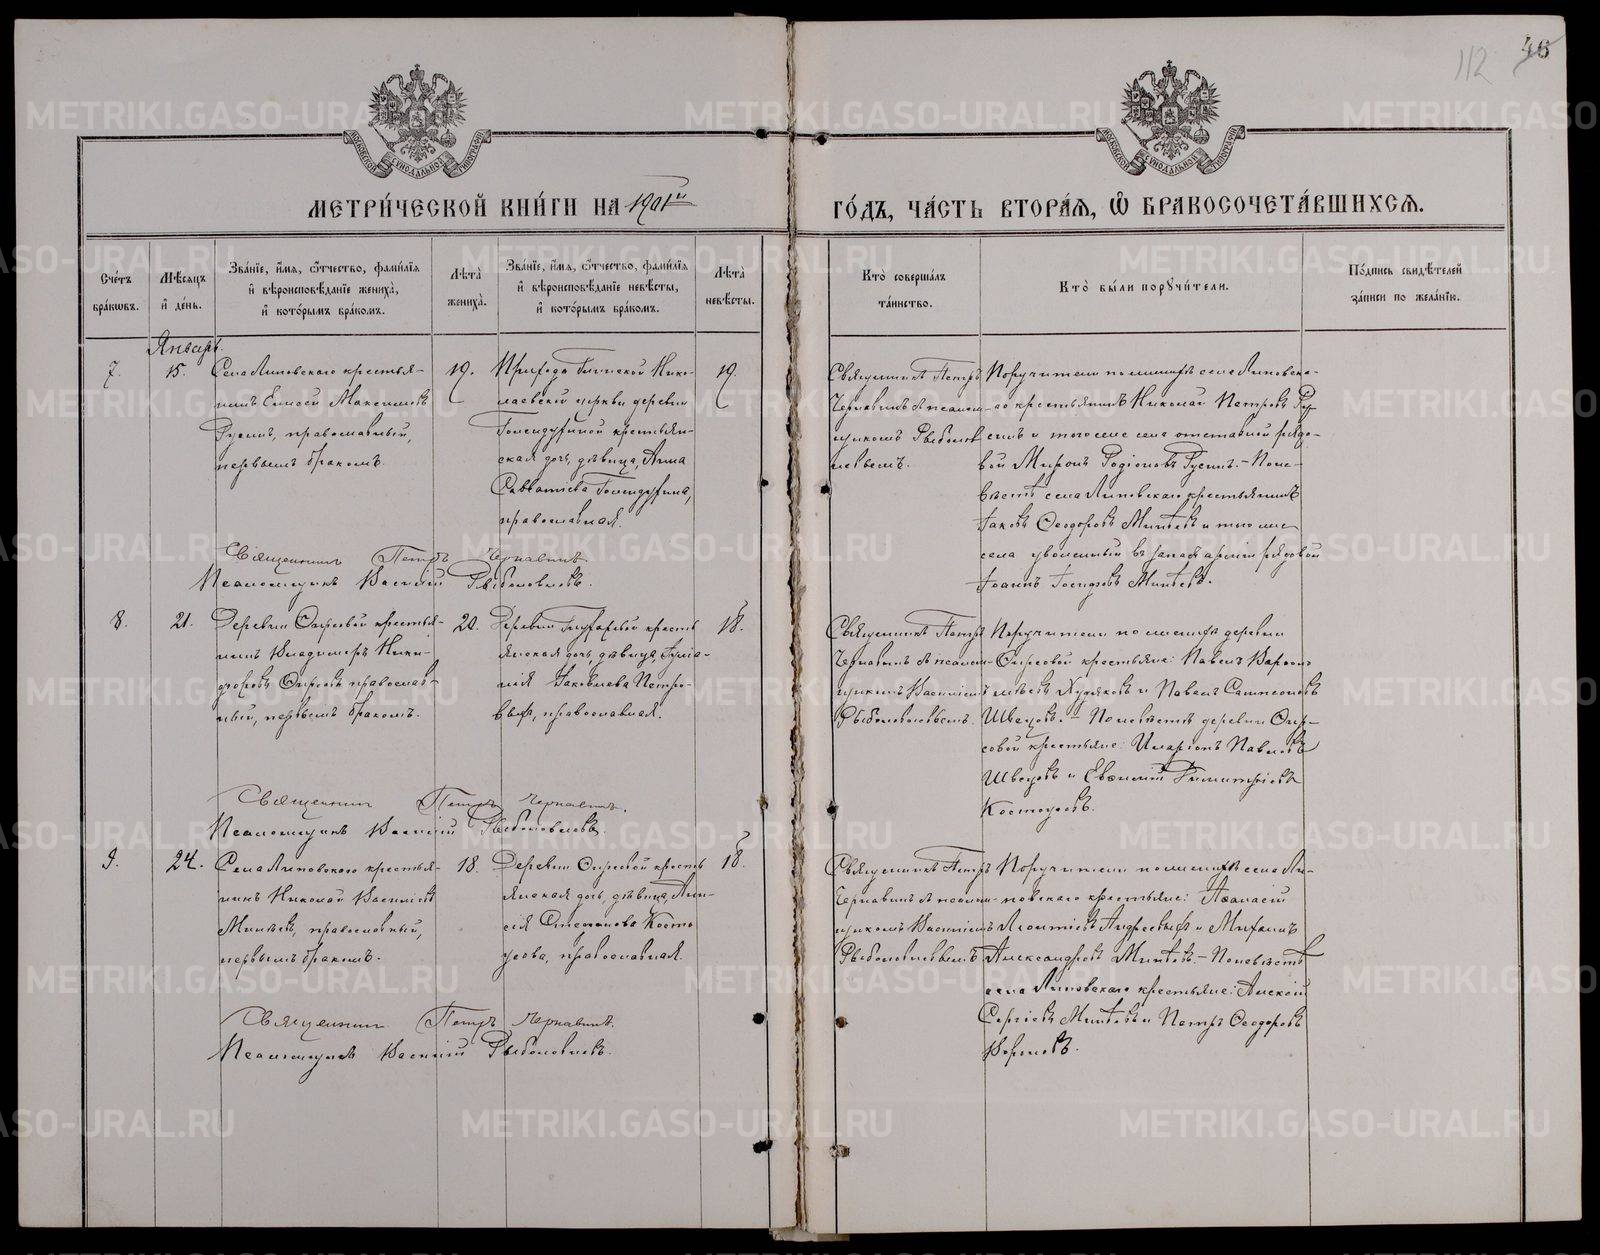 112 46
МЕТРИ́ЧЕСКОЙ КНИ́ГИ НА 1901й ГО́ДЪ, ЧА́СТЬ ВТОРА́Я, Ѡ БРАКОСОЧЕТА́ВШИХСЯ.
Сче́тъ бра́кѡвъ.
Мѣ́сяцъ и҆ де́нь.
Зва́нїе, и҆́мя, ѻ҆́тчество, фами́лїя
и҆ вѣроисповѣ́данїе жениха̀,
и҆ кото́рымъ бра́комъ.
Лѣта̀ жениха̀.
Зва́нїе, и҆́мя, ѻ҆́тчество, фами́лїя
и҆ вѣроисповѣ́данїе невѣ́сты,
и҆ кото́рымъ бра́комъ.
Лѣта̀ невѣ́сты.
Кто̀ соверша́лъ
та́инство.
Кто̀ бы́ли порꙋчи́тели.
По́дпись свидѣ́телей
за́писи по жела́нїю.
Январь.
7.
15.
Села Липовскаго крестья-
нинъ Елисей Максимовъ
Русинъ, православный,
первымъ бракомъ.
19.
Прихода
Нико-
лаевской церкви деревни
Голендухиной крестьян-
ская дочь, дѣвица, Анна
Савватіева Голендухина,
православная.
19.
Священникъ Петръ
Чернавинъ съ псалом-
щикомъ Рыболов-
левымъ.
Поручители по женихѣ села Липовска-
го крестьянинъ Николай Петровъ Ру-
синъ и того же села отставной рядо-
вой Миронъ Родіоновъ Русинъ. – По не-
вѣстѣ села Липовскаго крестьянинъ
Іаковъ Ѳеодоровъ Минѣевъ и того же
села уволенный въ запасъ арміи рядовой
Іоаннъ Минѣевъ.
Священникъ Петръ Чернавинъ.
Псаломщикъ Василій Рыболовлевъ.
8.
21.
Деревни крестья-
нинъ Владимиръ Ники-
форовъ православ-
ный, первымъ бракомъ.
20.
Деревни крестья
янская дочь, дѣвица,
Іаковлева Петро-
выхъ, православная.
18.
Священникъ Петръ
Чернавинъ съ псалом-
щикомъ Василіемъ
Рыболовлевымъ.
Поручители по женихѣ деревни
крестьяне: Павелъ
Худяковъ и Павелъ Сампсоновъ
Швецовъ. – По невѣстѣ деревни
крестьяне: Иларіонъ Павловъ
Швецовъ и Евѳимій Димитріевъ
Костоусовъ.
Священникъ Петръ Чернавинъ.
Псаломщикъ Василій Рыболовлевъ.
9.
24.
Села Липовскаго крестья-
нинъ Николай Василіевъ
Минѣевъ, православный,
первымъ бракомъ.
18.
Деревни крестья
янская дочь, дѣвица,
Степанова Косто
усова, православная.
18.
Священникъ Петръ
Чернавинъ съ псалом-
щикомъ Василіемъ
Рыболовлевымъ
Поручители по женихѣ села Ли-
повскаго крестьяне: Аѳанасій
Леонтіевъ Андреевыхъ и Михаилъ
Александровъ Минѣевъ. – По невѣстѣ
села Липовскаго крестьяне: Алексій
Сергіевъ Минѣевъ и Петръ Ѳеодоровъ
Вороновъ.
Священникъ Петръ Чернавинъ.
Псаломщикъ Василій Рыболовлевъ.
METRIKI.GASO-URAL.RU